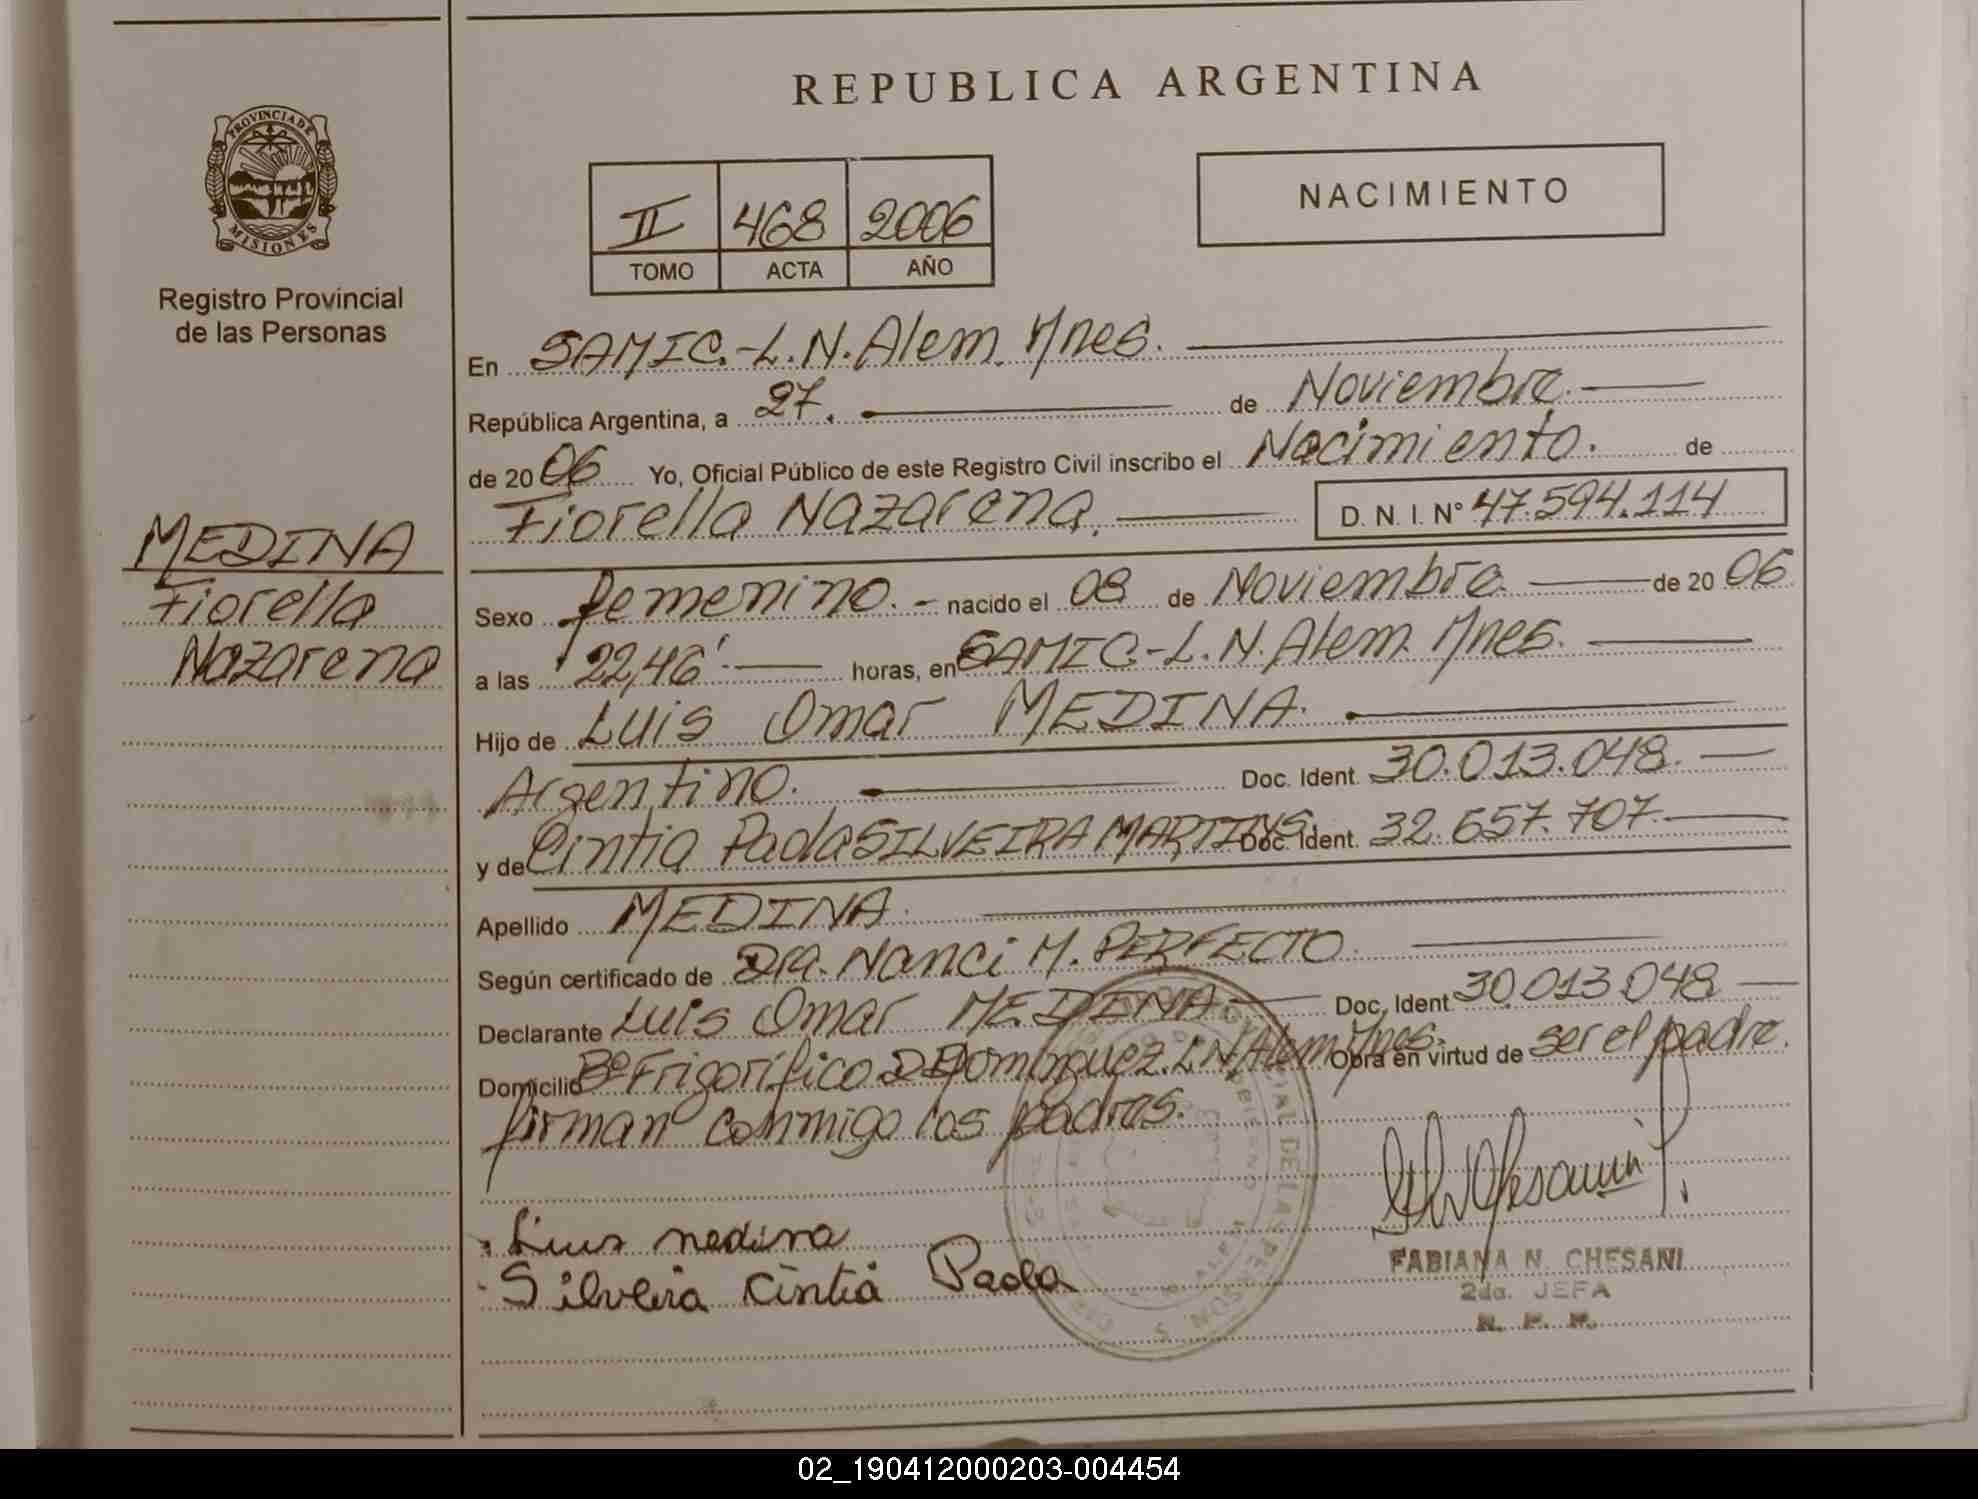 REPUBLICA ARGENTINA
PROVINCIA DE
MISIONES
Registro Provincial
de las Personas
II 468 2006
TOMO ACTA AÑO
NACIMIENTO
MEDINA
Fiorella
Nazarena
En SAMIC.-L.N.Alem. Mnes.
República Argentina, a 27. de Noviembre.
de 2006 Yo, Oficial Público de este Registro Civil inscribo el Nacimiento. de
Fiorella Nazarena. D. N. I. Nº 47.594.114
Sexo femenino.- nacido el 08 de Noviembre de 2006
a las 22,46' horas, en SAMIC-L.N.Alem. Mnes.
Hijo de Luis Omar MEDINA.
Argentino. Doc. Ident. 30.013.048.
y de Cintia Paola SILVEIRA MARTINS Doc. Ident. 32.657.707.
Apellido MEDINA.
Según certificado de Dra. Nanci M. PERFECTO.
Declarante Luis Omar MEDINA Doc. Ident 30.013.048
Domicilio Bº Frigorífico D Dominguez. L.N.Alem Mnes. Obra en virtud de ser el padre.
firman conmigo los padres.
Luis medina
Silveira Cintia Paola
FABIANA N. CHESANI
2da. JEFA
R. P. P.
02_190412000203-004454